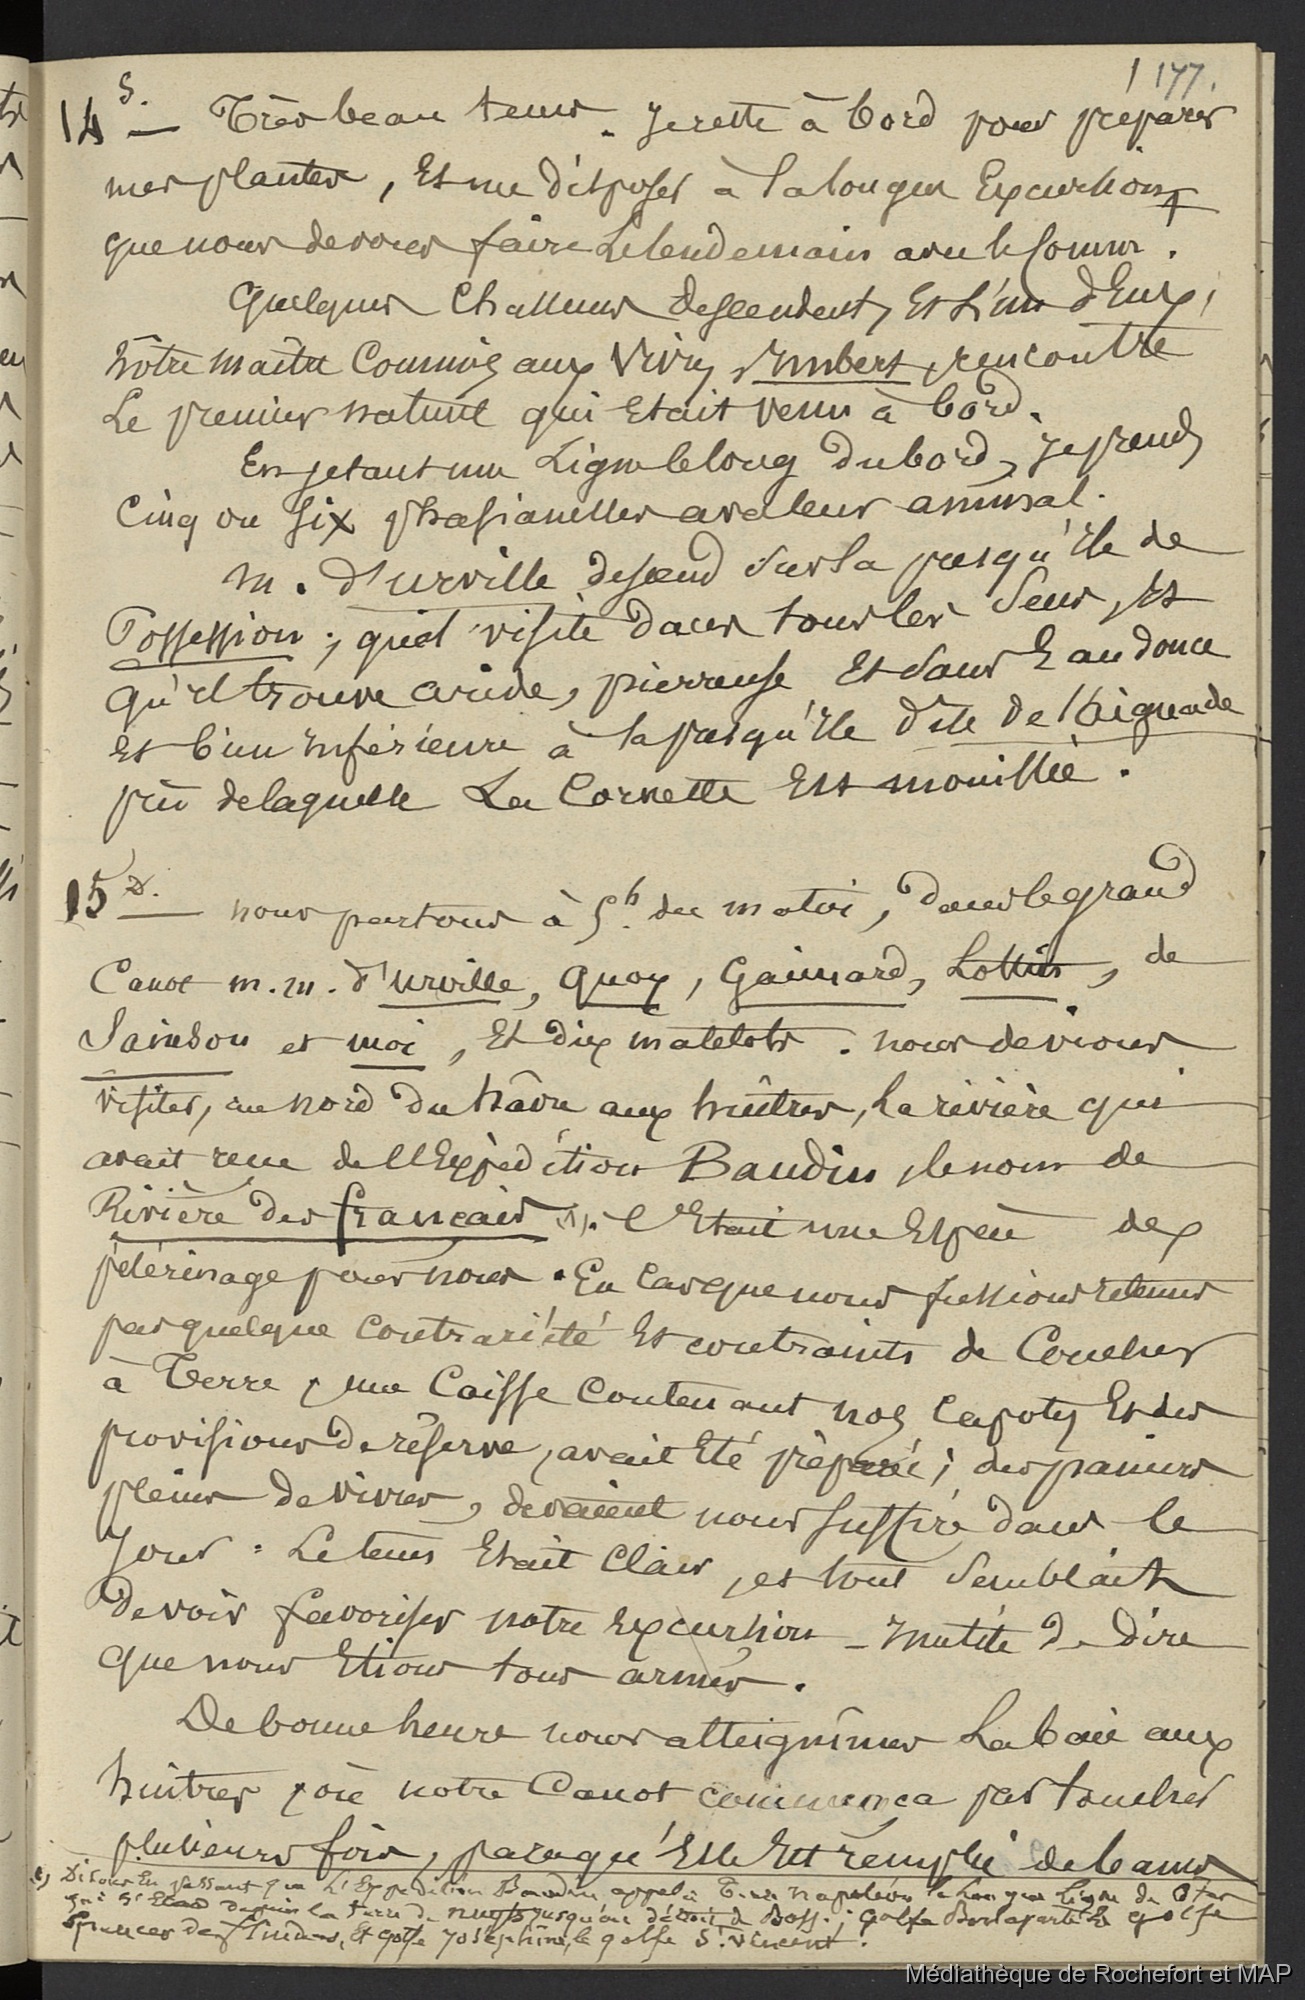 177.
14 S. — Très beau tems. Je reste à bord pour préparer
mes plantes, Et me disposer à la longue Excursion
que nous devons faire Le lendemain avec le Commr.
Quelques Chasseurs descendent, Et L'un d'Eux,
nôtre Maître Commis aux Vivres, Imbert, rencontre
Le premier naturel qui Etait venu à bord.
En jetant une Ligne le long du bord, Je prends
Cinq ou Six phasianelles avec leur animal.
M. d'Urville descend sur la presqu'Ile de
Possession, qu'il visite dans tous les Sens, Et
qu'il trouve aride, pierreuse Et sans Eau douce
Et bien inférieure à la presqu'Ile d'Ile de l'Aiguade
près de laquelle La Corvette Est mouillée.
15 D. — nous partons à 5h. du matin, dans le grand
Canot m.m. d'urville, Quoy, Gaimard, Lottin, de
Sainson et moi, Et dix matelots. nous devions
visiter, au nord du hâvre aux huîtres, La rivière qui
avait reçu de l'Expédition Baudin, le nom de
Rivière des français (1). C'Etait une Espèce de
pélérinage pour nous. En Cas que nous fussions retenus
par quelque contrariété Et contraints de Coucher
à Terre, une Caisse Contenant nos Capotes Et des
provisions de réserve, avait Eté préparée; des paniers
pleins de vivres, devaient nous suffire dans le
Jour. Le tems Etait Clair, et tout Semblait
devoir favoriser notre Excursion — Inutile de dire
que nous Etions tous armés.
De bonne heure nous atteignîmes La baie aux
huîtres, où notre Canot commença par toucher
plusieurs fois, parcequ'Elle Est remplie de bancs
1) Disons En passant que L'Expédition Baudin appela Terre Napoléon la Longue Ligne de Côtes
qui S'Etend depuis la terre de nuyts jusqu'au détroit de Bass.; Golfe Bonaparte Le golfe
Spencer de flinders, Et golfe Joséphine, le golfe St. Vincent.
Médiathèque de Rochefort et MAP